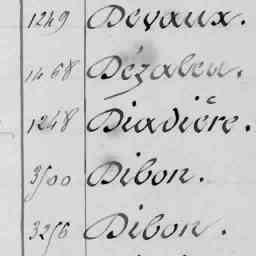 1249 Devaux.
1468 Dézaleu.
1248 Diadière.
3500 Dibon.
3256 Dibon.